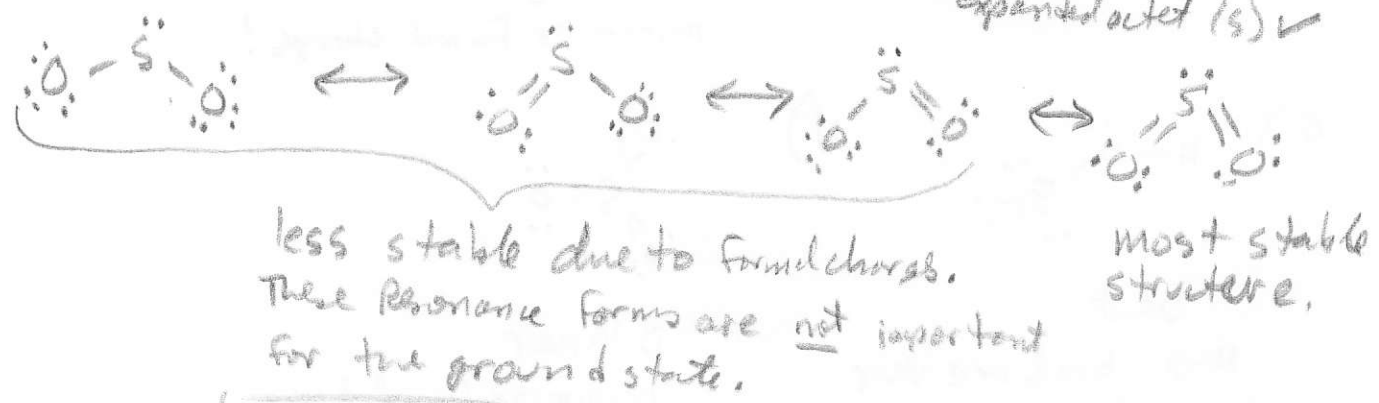 expanded octet (S) ✓
:Ö - S̈ - Ö: ↔ O = S̈ - O ↔ O - S̈ = O ↔ O = S̈ = O
less stable due to formal charges.
These Resonance forms are not important
for the ground state.
most stable
structure.